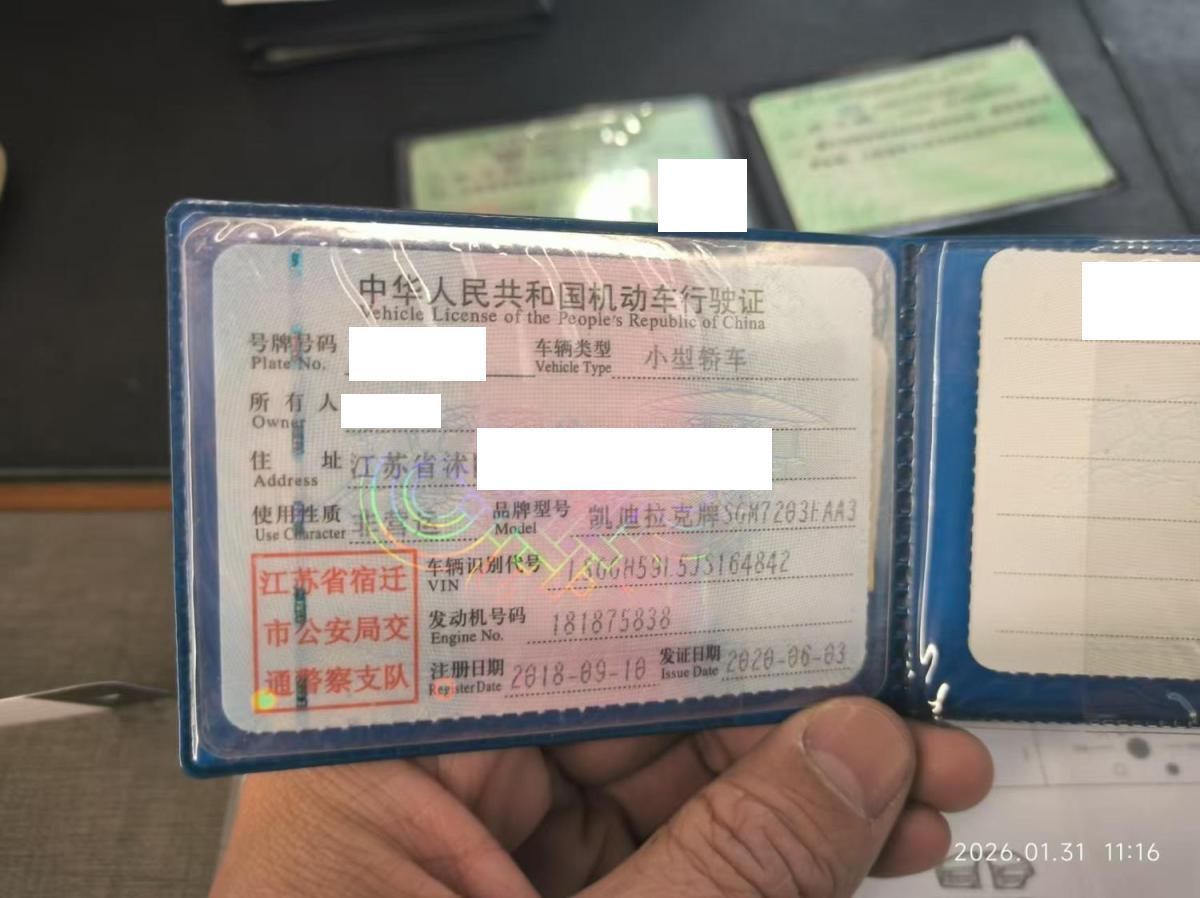 中华人民共和国机动车行驶证
Vehicle License of the People's Republic of China
号牌号码
Plate No.
车辆类型 小型轿车
Vehicle Type
所有人
Owner
住址 江苏省沭
Address
使用性质 非营运
Use Character
品牌型号 凯迪拉克牌
Model
江苏省宿迁
市公安局交
通警察支队
车辆识别代号
VIN
发动机号码 181875838
Engine No.
注册日期 2018-09-10
Register Date
发证日期 2020-06-03
Issue Date
2026.01.31 11:16